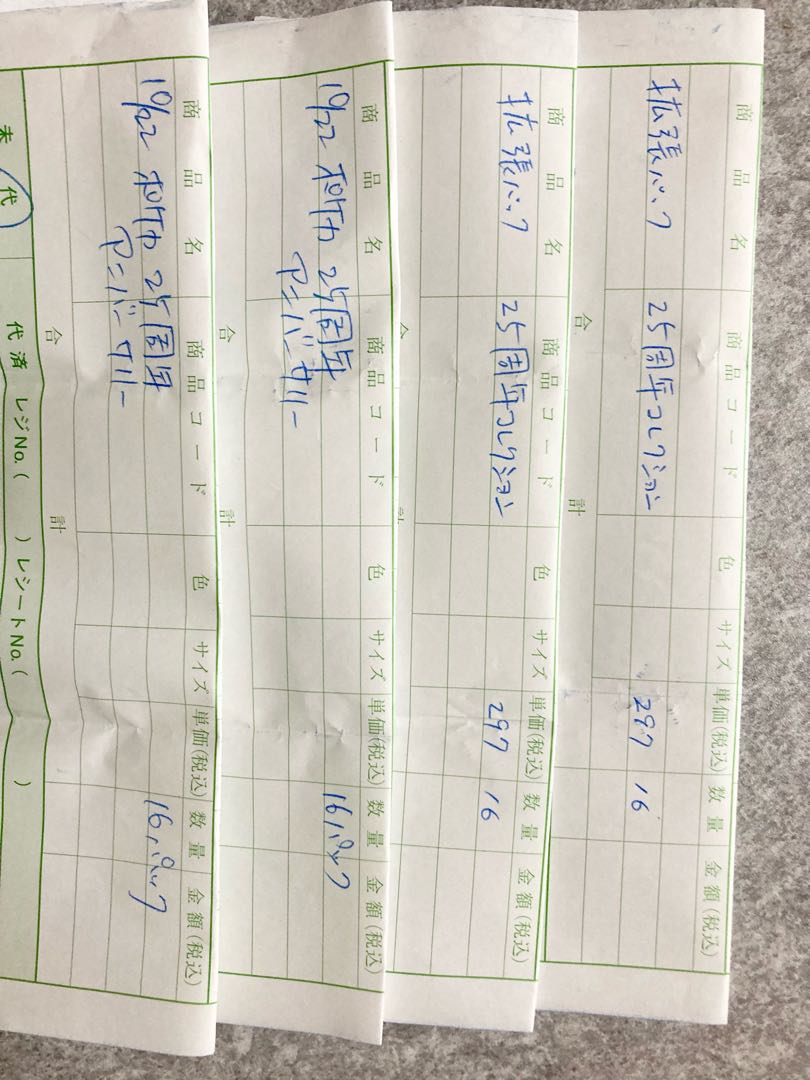 商品名 商品コード 色 サイズ 単価(税込) 数量 金額(税込)
拡張パック 25周年コレクション 297 16
合計
商品名 商品コード 色 サイズ 単価(税込) 数量 金額(税込)
拡張パック 25周年コレクション 297 16
商品名 商品コード 色 サイズ 単価(税込) 数量 金額(税込)
10/22 ポケカ 25周年 16パック
アニバーサリー
合計
商品名 商品コード 色 サイズ 単価(税込) 数量 金額(税込)
10/22 ポケカ 25周年 16パック
アニバーサリー
合計
代 代済 レジNo.( ) レシートNo.( )
未